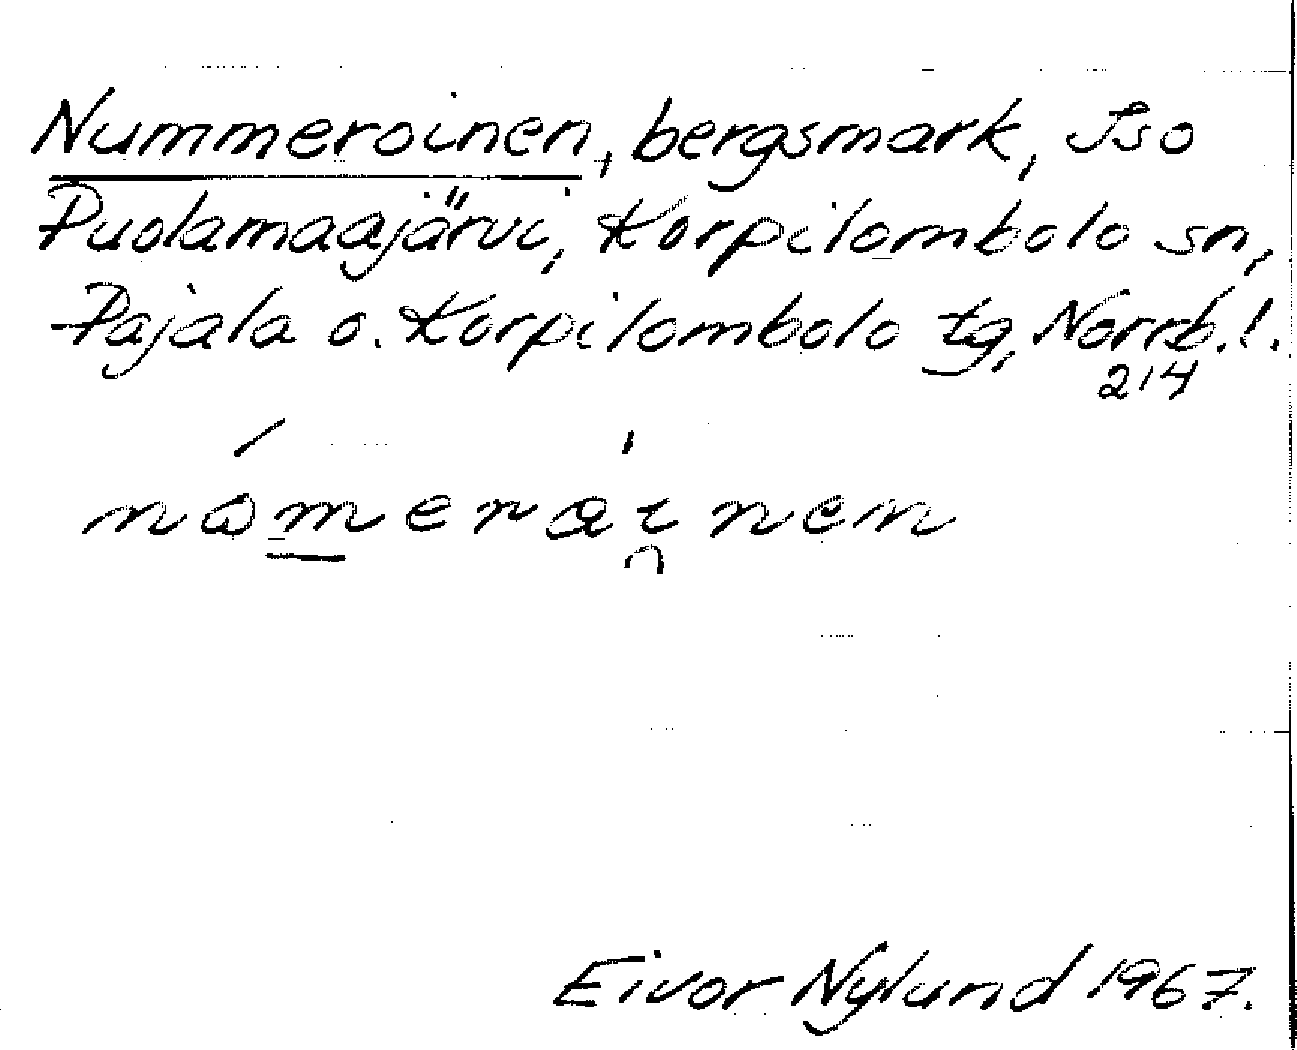 Nummeroinen, bergsmark, Iso
Puolamaajärvi, Korpilombolo sn,
Pajala o. Korpilombolo tg, Norrb. l.
214
Eivor Nylund 1967.